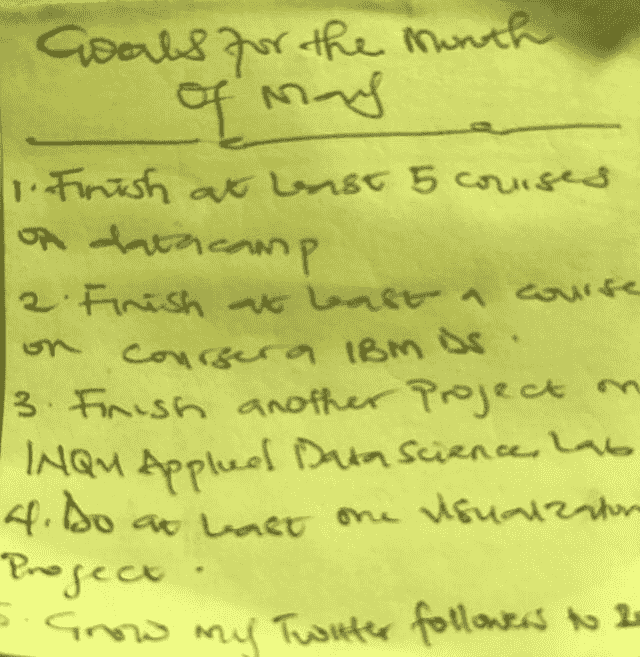 Goals for the Month
Of May
1. Finish at least 5 courses
on datacamp
2. Finish at least a course
on coursera IBM DS.
3. Finish another Project on
Applied Data Science Lab
4. Do at least one visualization
Project.
Grow my Twitter followers to